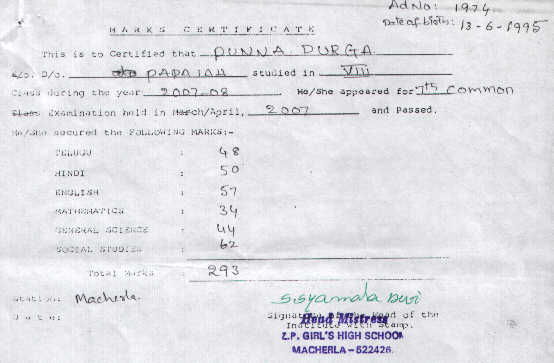 Ad No: 1974
Date of birth: 13-6-1995
MARKS CERTIFICATE
This is to Certified that PUNNA DURGA
S/o. D/o. PAPAIAH studied in VIII
Class during the year 2007-08 He/She appeared for 7th Common
Class Examination held in March/April, 2007 and Passed.
He/She secured the FOLLOWING MARKS:-
TELUGU : 48
HINDI : 50
ENGLISH : 57
MATHEMATICS : 34
GENERAL SCIENCE : 44
SOCIAL STUDIES : 62
Total Marks : 293
Station: Macherla.
S. Syamala Devi
Date:
Signature of the Head of the
Head Mistress
Institute with Stamp.
Z.P. GIRL'S HIGH SCHOOL
MACHERLA-522426.